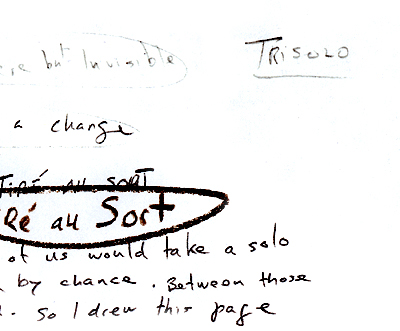 but Invisible
TRISOLO
a change
TiRÉ AU SORT
Ré au Sort
of us would take a solo
by chance. Between those
. So I drew this page